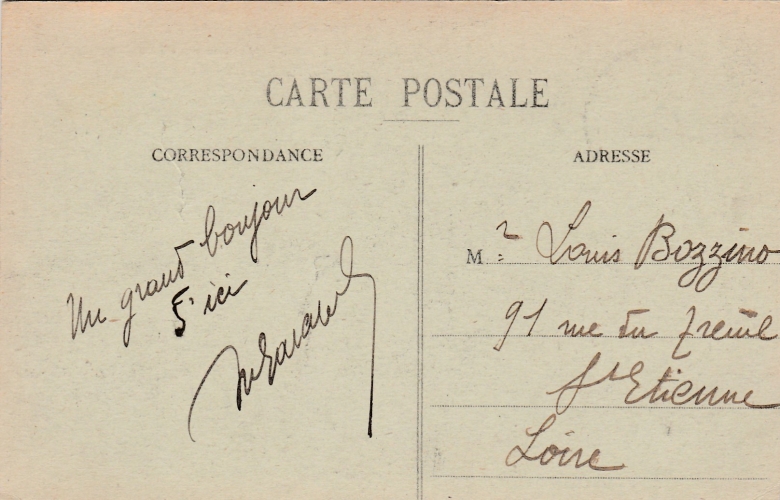 CARTE POSTALE
CORRESPONDANCE
Un grand bonjour
d'ici
ADRESSE
Mr Louis Bozzino
91 rue du Treuil
St Etienne
Loire